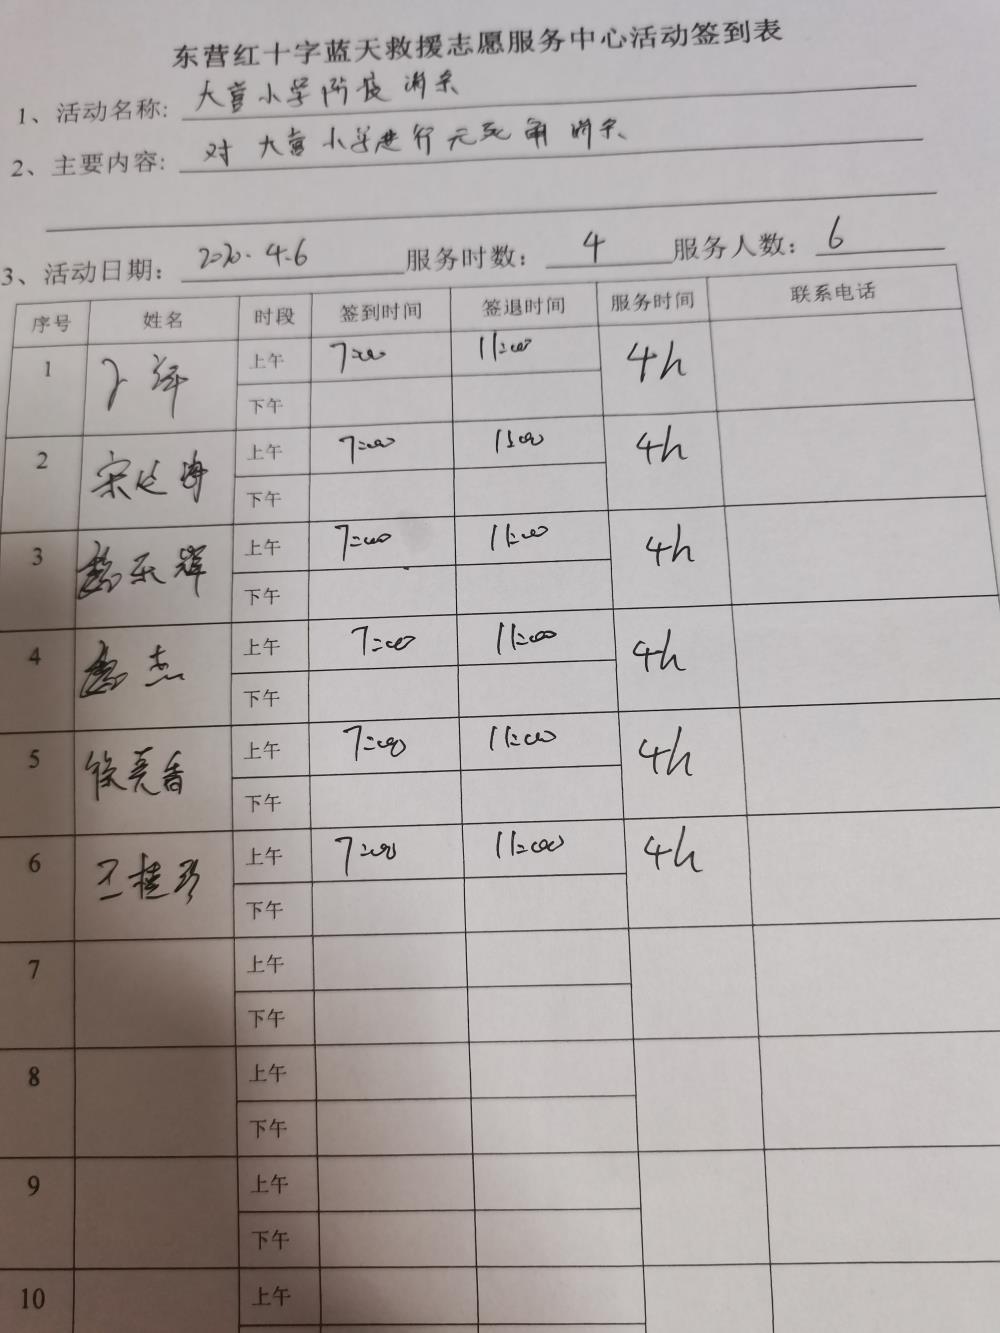 东营红十字蓝天救援志愿服务中心活动签到表
1、活动名称: 大营小学防疫消杀
2、主要内容: 对大营小学进行无死角消杀
3、活动日期: 2020.4.6 服务时数: 4 服务人数: 6
序号 姓名 时段 签到时间 签退时间 服务时间 联系电话
1 上午 7:00 11:00 4h
下午
2 宋 海 上午 7:00 11:00 4h
下午
3 上午 7:00 11:00 4h
下午
4 杰 上午 7:00 11:00 4h
下午
5 徐亮香 上午 7:00 11:00 4h
下午
6 王桂珍 上午 7:00 11:00 4h
下午
7 上午
下午
8 上午
下午
9 上午
下午
10 上午